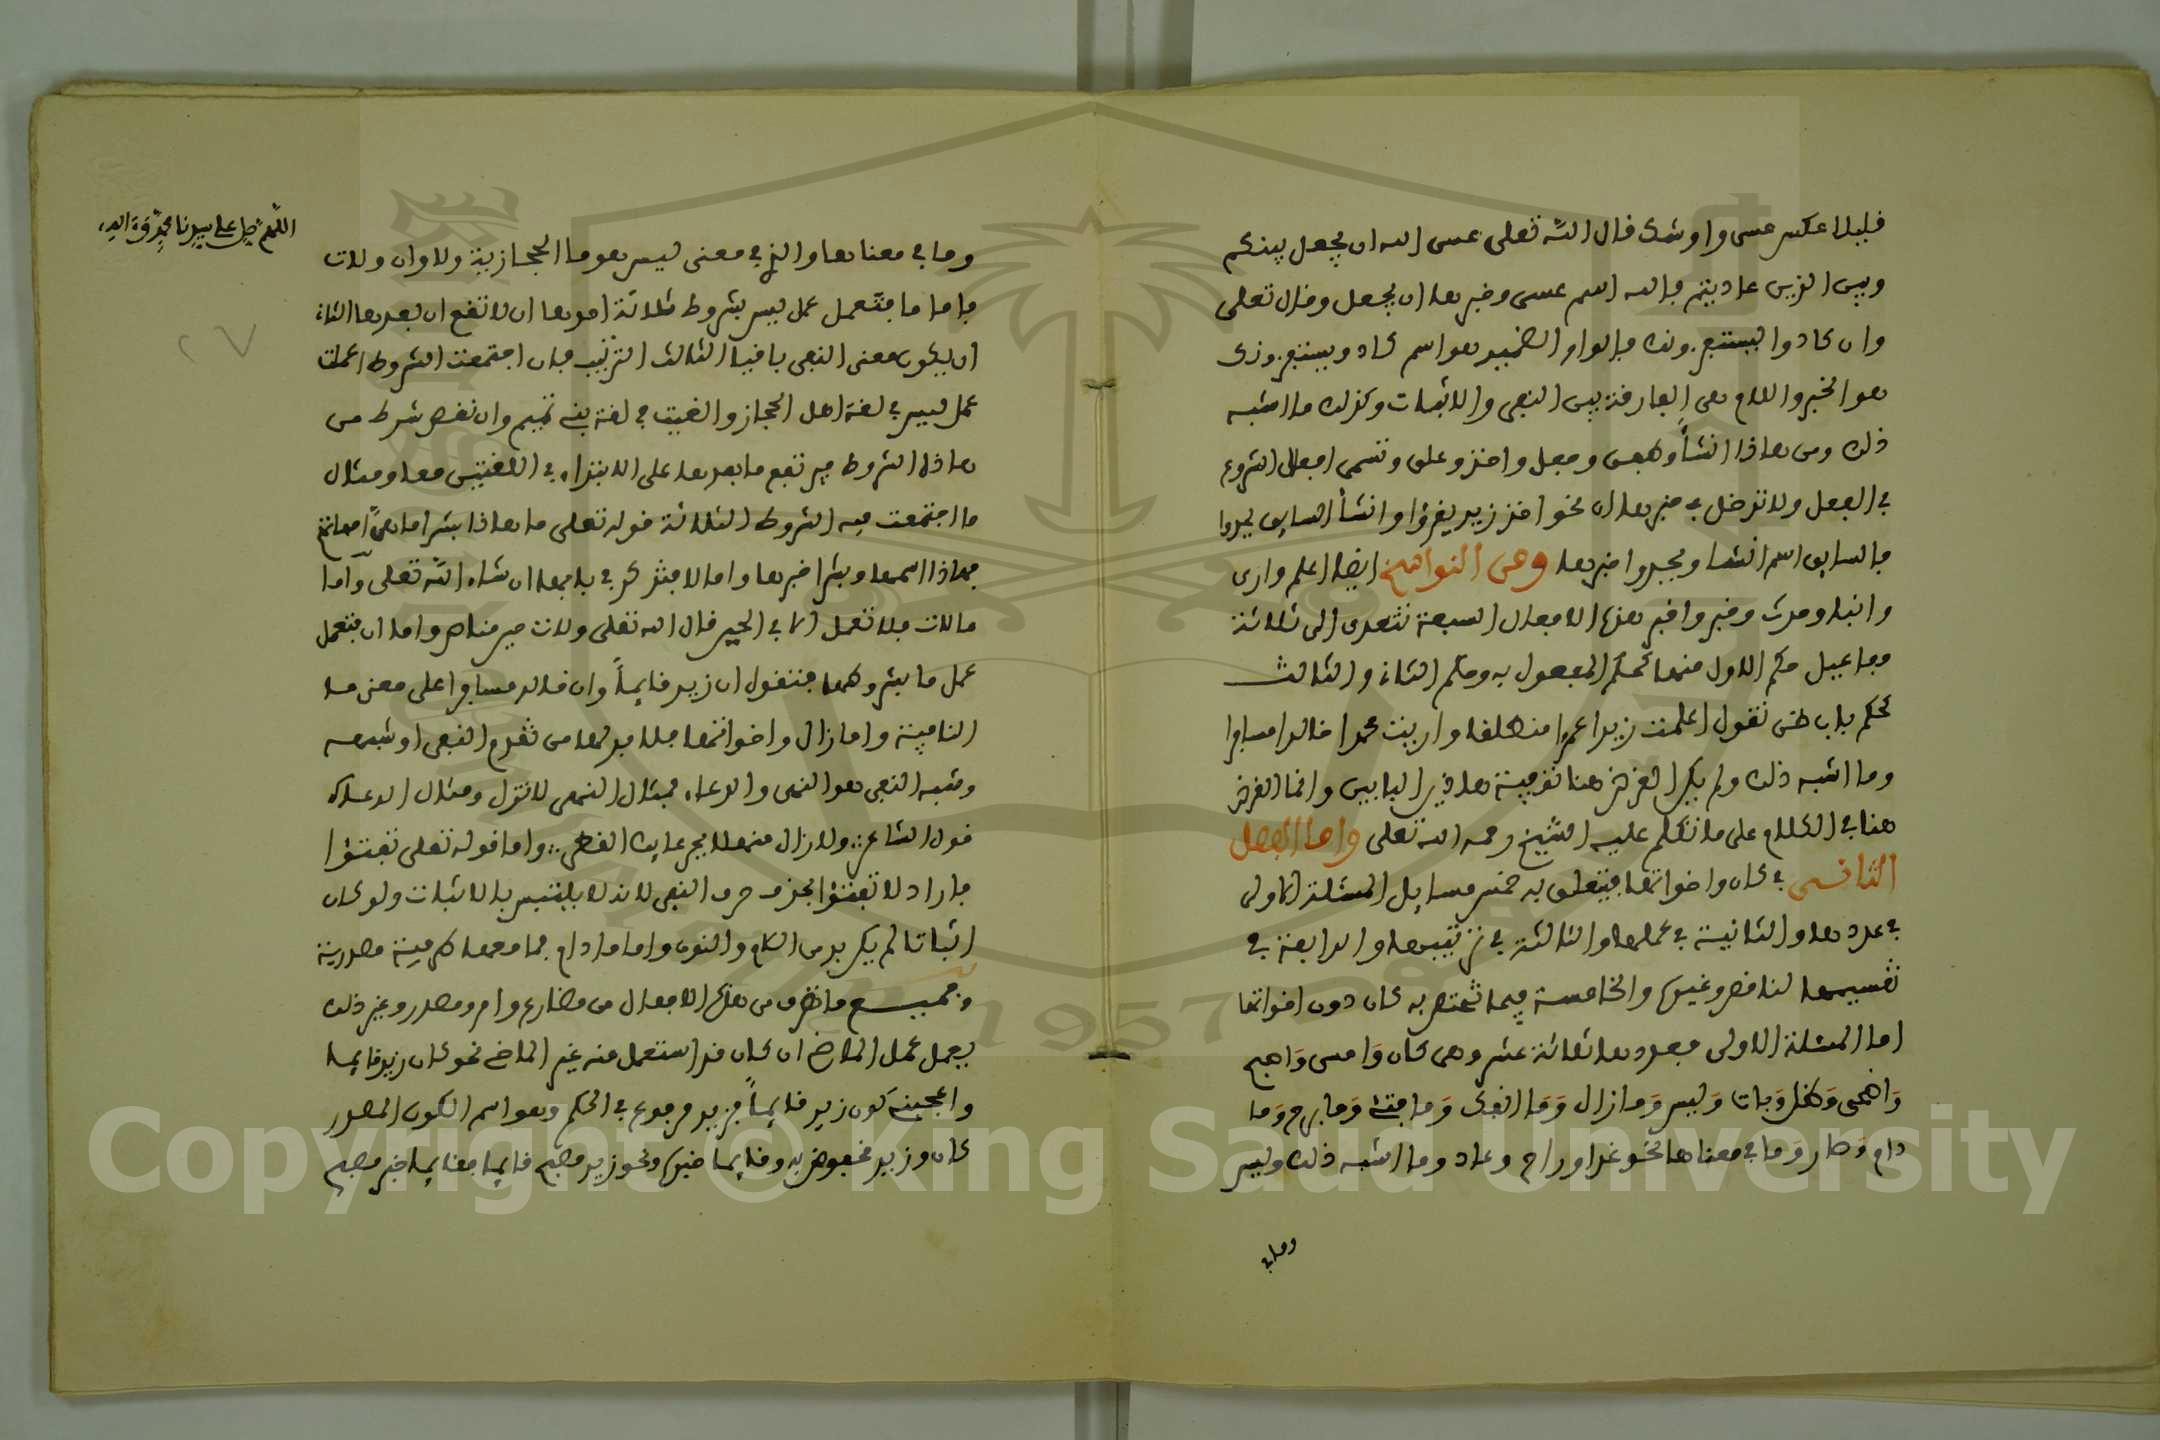 فليلا عكس عسى واوشك قال الله تعلى عسى الله ان يجعل بينكم
وبين الذين عاديتم فالله اسم عسى وخبرها ان يجعل وقال تعلى
وان كادوا ليستفزونك فالواو الضمير هو اسم كاد ويستفزونك
هو الخبر واللام هي الفارقة بين النفي والاثبات وكذلك ما اشبه
ذلك ومن هاذا انشأ وطفق وجعل واخذ وعلق وتسمى افعال الشروع
في الفعل ولا تدخل في خبرها ان نحو اخذ زيد يقرؤا وانشأ السايق يحدوا
فالسايق اسم انشا ويحدوا خبرها ومن النواسخ ايضا اعلم وارى
وانبا وحدث وخبر واخبر هذه الافعال السبعة تتعدى الى ثلاثة
مفاعيل حكم الاول منها كحكم المفعول به وحكم الثاني والثالث
كحكم باب ظن تقول اعلمت زيدا عمرا منطلقا واريت محمدا خالدا مسافرا
وما اشبه ذلك ولم يكن الغرض هنا تو هاذين البابين وانما الغرض
هنا في الكلام على ما تكلم عليه الشيخ رحمه الله تعلى واما الفصل
الثاني في كان واخواتها فيتعلق به خمس مسايل المسئلة الاولى
في عددها والثانية في عملها والثالثة في ترتيبها والرابعة في
تقسيمها لناقص وغيره والخامسة فيما تختص به كان دون اخواتها
اما المسئلة الاولى فعددها ثلاثة عشر وهي كان وامسى واصبح
واضحى وظل وبات وليس وما زال وما انفك وما فتئ وما برح وما
دام وصار وما في معناها نحو غدا وراح وعاد وما اشبه ذلك وليس
وما في
اللهم صل على سيدنا محمد وءاله
٢٧
وما في معناها والذي في معنى ليس هو ما الحجازية ولا وان ولات
فاما ما فتعمل عمل ليس بشروط ثلاثة احدها ان لا تقع ان بعدها الثاني
ان يكون معنى النفي باقيا الثالث الترتيب فان اجتمعت الشروط اعملت
عمل ليس في لغة اهل الحجاز والغيت في لغة بني تميم وان نقص شرط من
هاذه الشروط فيرتفع ما بعدها على الابتداء في اللغتين معا ومثال
ما اجتمعت فيه الشروط الثلاثة قوله تعلى ما هاذا بشرا ما هن امهاتهم
فهاذا اسمها وبشرا خبرها واما لا فتذكر في بابها ان شاء الله تعلى واما
لات فلا تعمل الا في الحين قال الله تعلى ولات حين مناص واما ان فتعمل
عمل ما بشروطها فتقول ان زيد قايما وان خالد مسافرا على معنى ما
النافية واما زال واخواتها فلا بد لها من تقدم النفي او شبهه
وشبه النفي هو النهي والدعاء فمثال النهي لا تزل ومثال الدعاء
قول الشاعر ولا زال منهلا بجرعايك القطر واما قوله تعلى تفتؤا
فاراد لا تفتؤا فحذف حرف النفي لانه لا يلتبس بالاثبات ولو كان
اثباتا لم يكن بد من اللام والنون واما ما دام فما معها ظرفية مصدرية
وجميع ما تصرف من هذه الافعال من مضارع وامر ومصدر وغير ذلك
يعمل عمل الماضي ان كان قد استعمل منه غير الماضي نحو كان زيد قايما
واعجبني كون زيد قايما فزيد مرفوع في الحكم وهو اسم الكون المصدر
كان وزيد مخفوض به وقايما خبره ونحو زيد مصبح قايما فقايما خبر مصبح
Copyright © King Saud University
1957